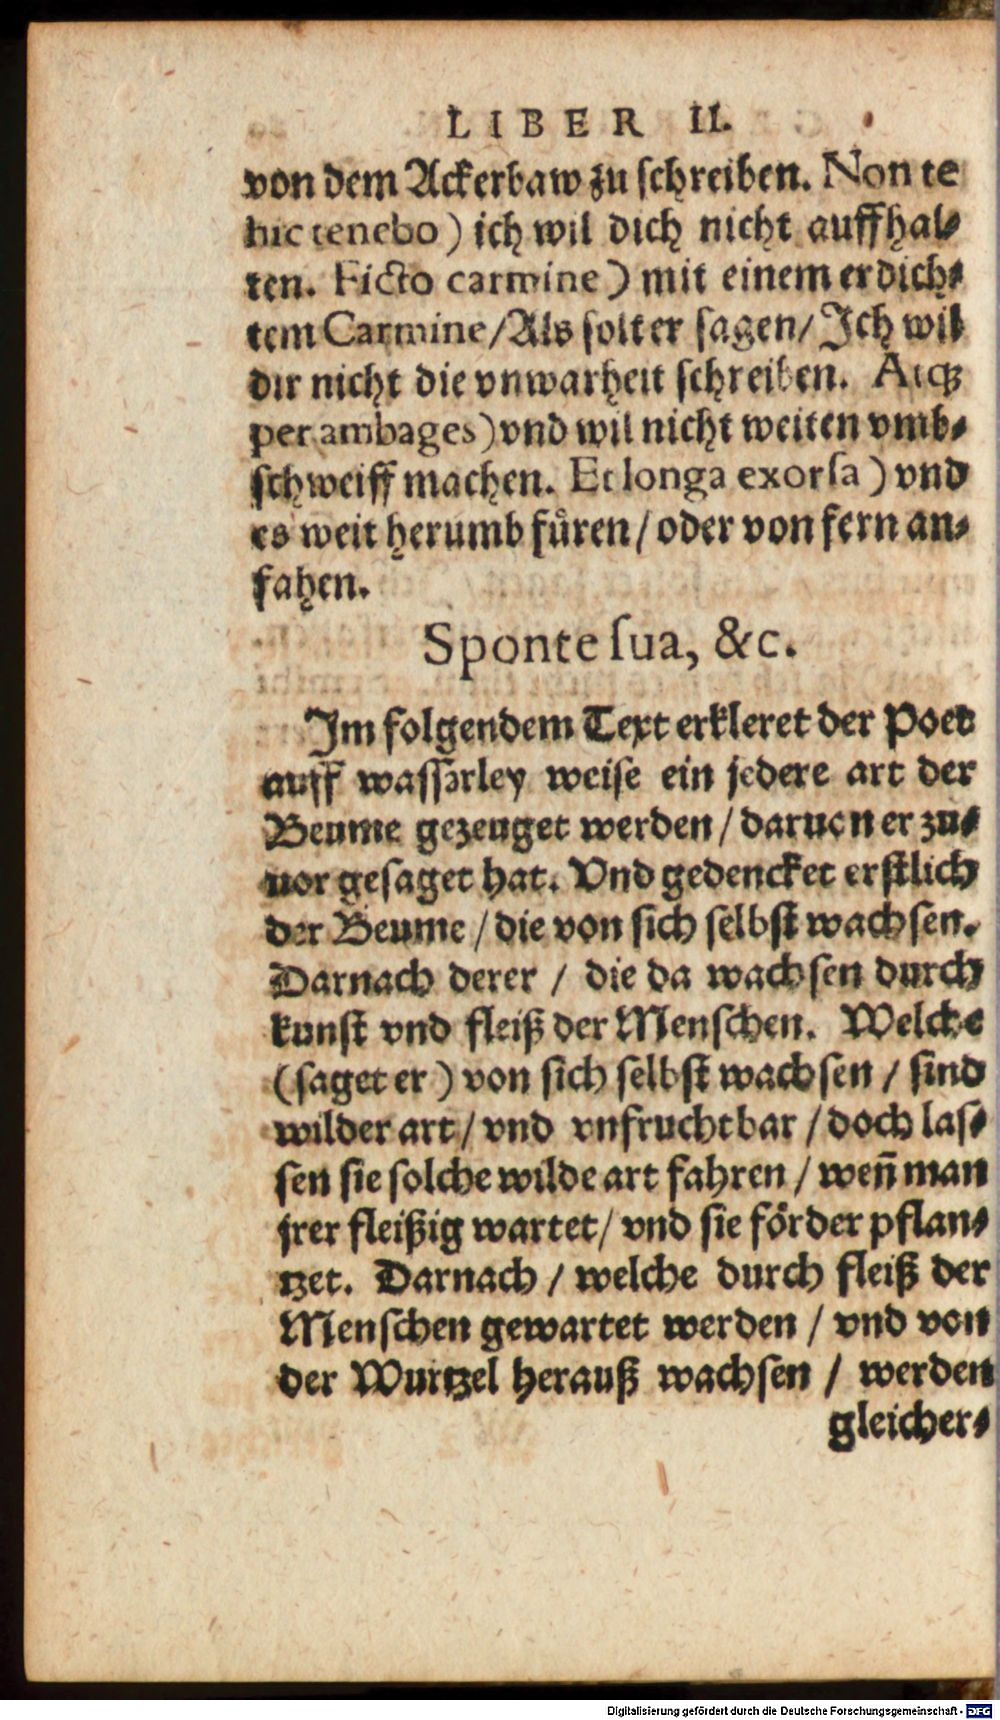 LIBER II.
von dem Ackerbaw zu schreiben. Non te
hic tenebo) ich wil dich nicht auffhal⸗
ten. Ficto carmine) mit einem erdich⸗
tem Carmine/Als solt er sagen/ Ich wil
dir nicht die vnwarheit schreiben. Atqꝫ
per ambages) vnd wil nicht weiten vmb⸗
schweiff machen. Et longa exorsa) vnd
es weit herumb fuͤren/ oder von fern an⸗
fahen.
Sponte sua, &c.
Im folgendem Text erkleret der Poet
auff wasserley weise ein jedere art der
Beume gezeuget werden/ daruon er zu⸗
uor gesaget hat. Vnd gedencket erstlich
der Beume/ die von sich selbst wachsen.
Darnach derer/ die da wachsen durch
kunst vnd fleiß der Menschen. Welche
(saget er) von sich selbst wachsen/ sind
wilder art/ vnd vnfruchtbar/ doch las⸗
sen sie solche wilde art fahren/ weñ man
jrer fleißig wartet/ vnd sie foͤrder pflan⸗
tzet. Darnach/ welche durch fleiß der
Menschen gewartet werden/ vnd von
der Wurtzel herauß wachsen/ werden
gleicher⸗
Digitalisierung gefördert durch die Deutsche Forschungsgemeinschaft - DFG